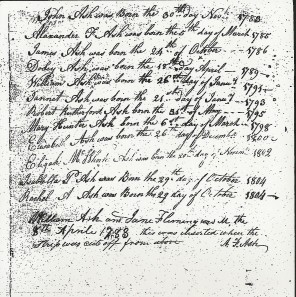 John Ash was Born the 30th day Novr 1783
Alexander F Ash was born 6th day of March 1785
James Ash was born the 24th of Octobr - 1786
Ash was born the 18th day April 1789
William Ash was born the 26th day of Jany 1791
Ash was born the 21st day of Jany 1793
Robert Rutherford Ash born 31st of May 1795
Mary Ash was born the 6th day of March 1798
Elizabeth Ash was born the 26th day of Decembr 1800
Ash was born the day of 1802
P Ash was Born the 29th day of October 1804
Rachel A Ash was Born the 29 day of October 1804
William Ash and Jane Fleming was M the
8th April 1783 this was inserted when the
strip was cut off from above A F Ash